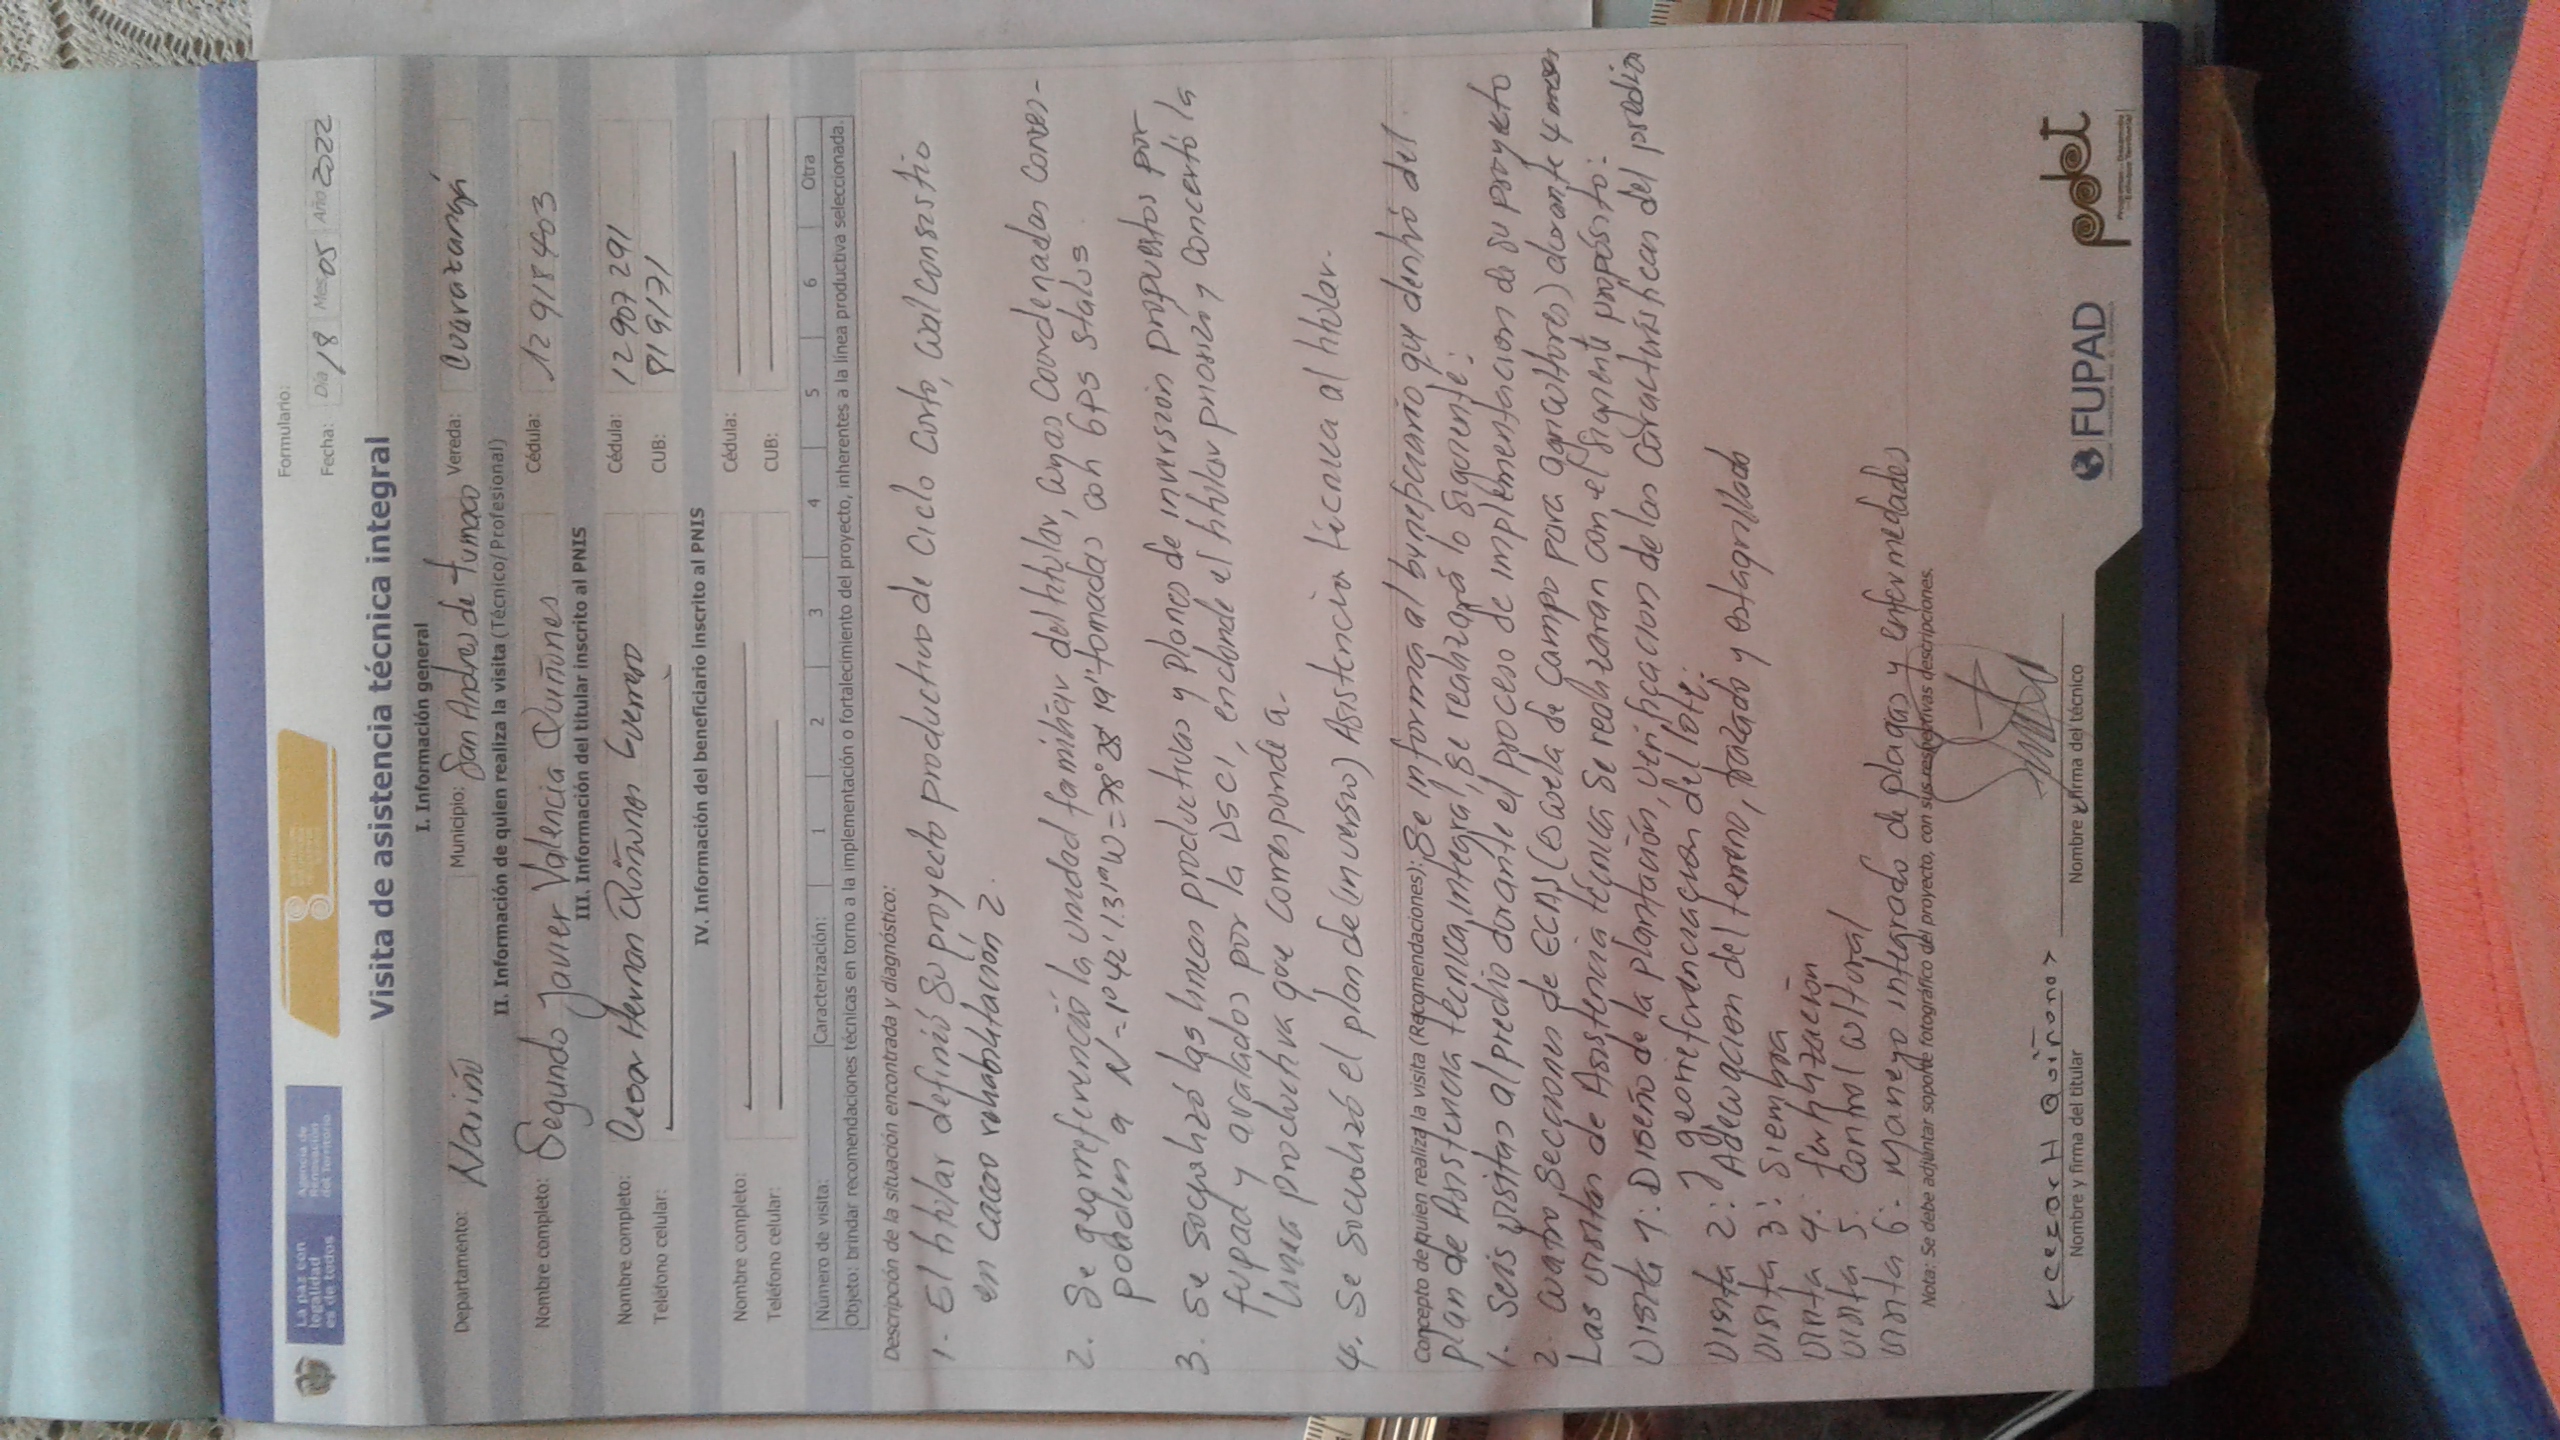 La paz con legalidad es de todos
Agencia de Renovación del Territorio
Formulario:
Fecha: Día 18 Mes 05 Año 2022
Visita de asistencia técnica integral
I. Información general
Departamento: Nariño Municipio: San Andres de Tumaco Vereda:
II. Información de quien realiza la visita (Técnico/Profesional)
Nombre completo: Segundo Javier Valencia Quiñones Cédula: 12918403
III. Información del titular inscrito al PNIS
Nombre completo: Cesar Hernan Quiñones Guerrero Cédula: 12907291
Teléfono celular: CUB: 819171
IV. Información del beneficiario inscrito al PNIS
Nombre completo: Cédula:
Teléfono celular: CUB:
Número de visita: Caracterización: 1 2 3 4 5 6 Otra
Objeto: brindar recomendaciones técnicas en torno a la implementación o fortalecimiento del proyecto, inherentes a la línea productiva seleccionada.
Descripción de la situación encontrada y diagnóstico:
1. El titular definió su proyecto productivo de ciclo corto, cual consistio
en cacao rehabilitación 2.
2. Se georreferenció la unidad familiar del titular, cuyas coordenadas corres-
ponden a N=1°42'1.31" W=78° 28' 19" tomadas con GPS status
3. Se socializó las lineas productivas y planes de inversion propuestos por
fupad y avalados por la DSCI, en donde el titular priorizó y concertó la
linea productiva que corresponde a.
4. Se Socializó el plan de (inversión) Asistencia técnica al titular.
Concepto de quien realiza la visita (Recomendaciones): Se informa al beneficiario que dentro del
plan de Asistencia técnica integral, se realizará lo siguiente:
1. Seis visitas al predio durante el proceso de implementacion de su proyecto
2. cuatro secciones de ECAS (escuela de campo para agricultores) durante 4 meses
Las visitas de Asistencia técnica se realizaran con el siguiente propósito:
Visita 1: Diseño de la plantación, verificacion de las caracteristicas del predio
y georreferenciación del lote.
Visita 2: Adecuacion del terreno, trazado y estaquillado
Visita 3: Siembra
Visita 4: fertilización
Visita 5. Control cultural
Visita 6: Manejo integrado de plagas y enfermedades
Nota: Se debe adjuntar soporte fotográfico del proyecto, con sus respetivas descripciones.
cezar H Quiñones
Nombre y firma del titular
Nombre y firma del técnico
FUPAD
pdet